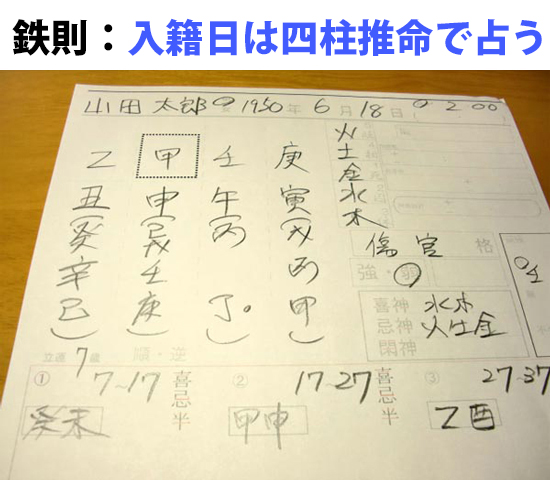 鉄則：入籍日は四柱推命で占う
山田 太郎 1950年 6月18日 2:00
乙 甲 壬 庚
丑 申 午 寅
(癸 (戊 (丙 (戊
辛 壬 丙
己) 庚) 丁) 甲)
火
土
金
水
木
傷官 格
強・弱
喜神 水木
忌神 火土金
閑神
立運 7歳 順・逆
① 7~17 喜忌半 ② 17~27 喜忌半 ③ 27~37
癸未 甲申 乙酉